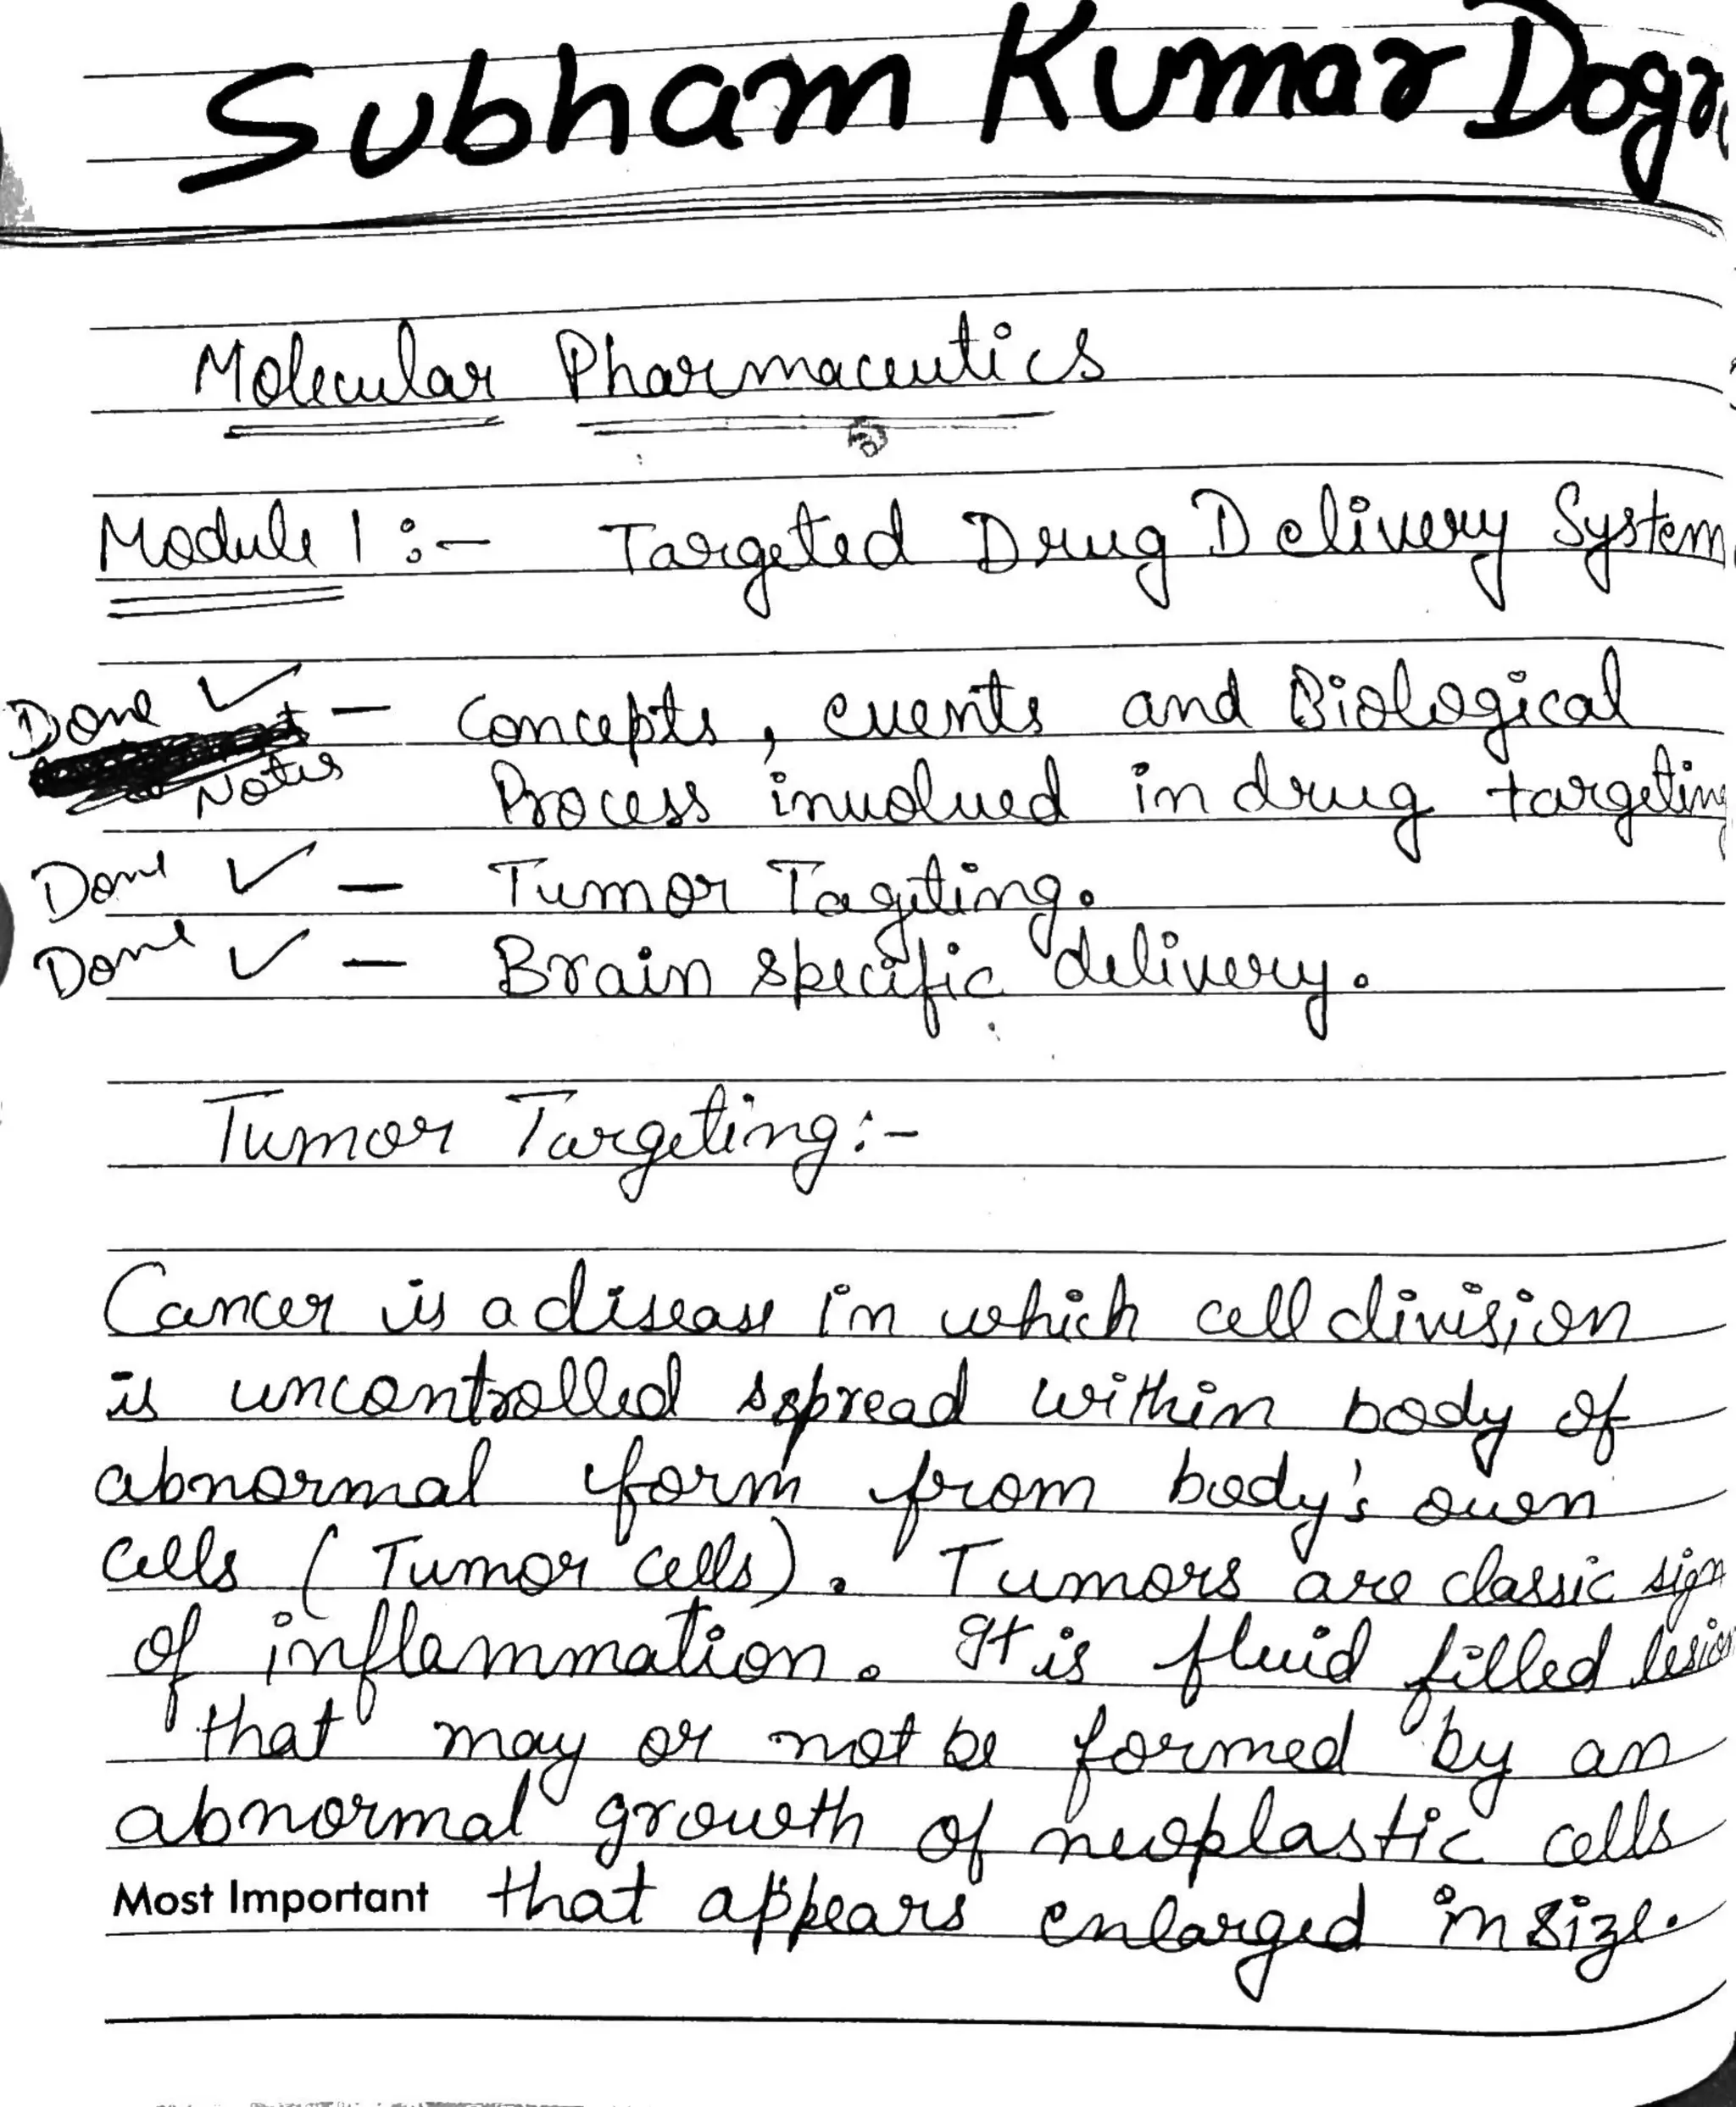 Subham Kumar Dogr
Molecular Pharmaceutics
Module 1 :- Targeted Drug Delivery System
Done ✓ - Concepts, events and Biological
Notes Process involved in drug targeting
Done ✓ - Tumor Tageting.
Done ✓ - Brain specific delivery.
Tumor Targeting:-
Cancer is a disease in which cell division
is uncontrolled sspread within body of
abnormal form from body's own
cells (Tumor cells). Tumors are classic sign
of inflammation. It is fluid filled lesion
that may or not be formed by an
abnormal growth of neoplastic cells
Most Important that appears enlarged in size.